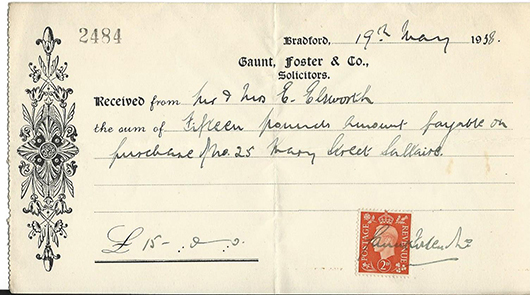 2484
Bradford, 19th May 1938.
Gaunt, Foster & Co.,
Solicitors.
Received from Mr & Mrs E. Elsworth
the sum of Fifteen pounds amount payable on
purchase of No. 25 Mary Street Saltaire.
£ 15 - : 0 : 0.
POSTAGE REVENUE
2D
Gaunt Foster & Co